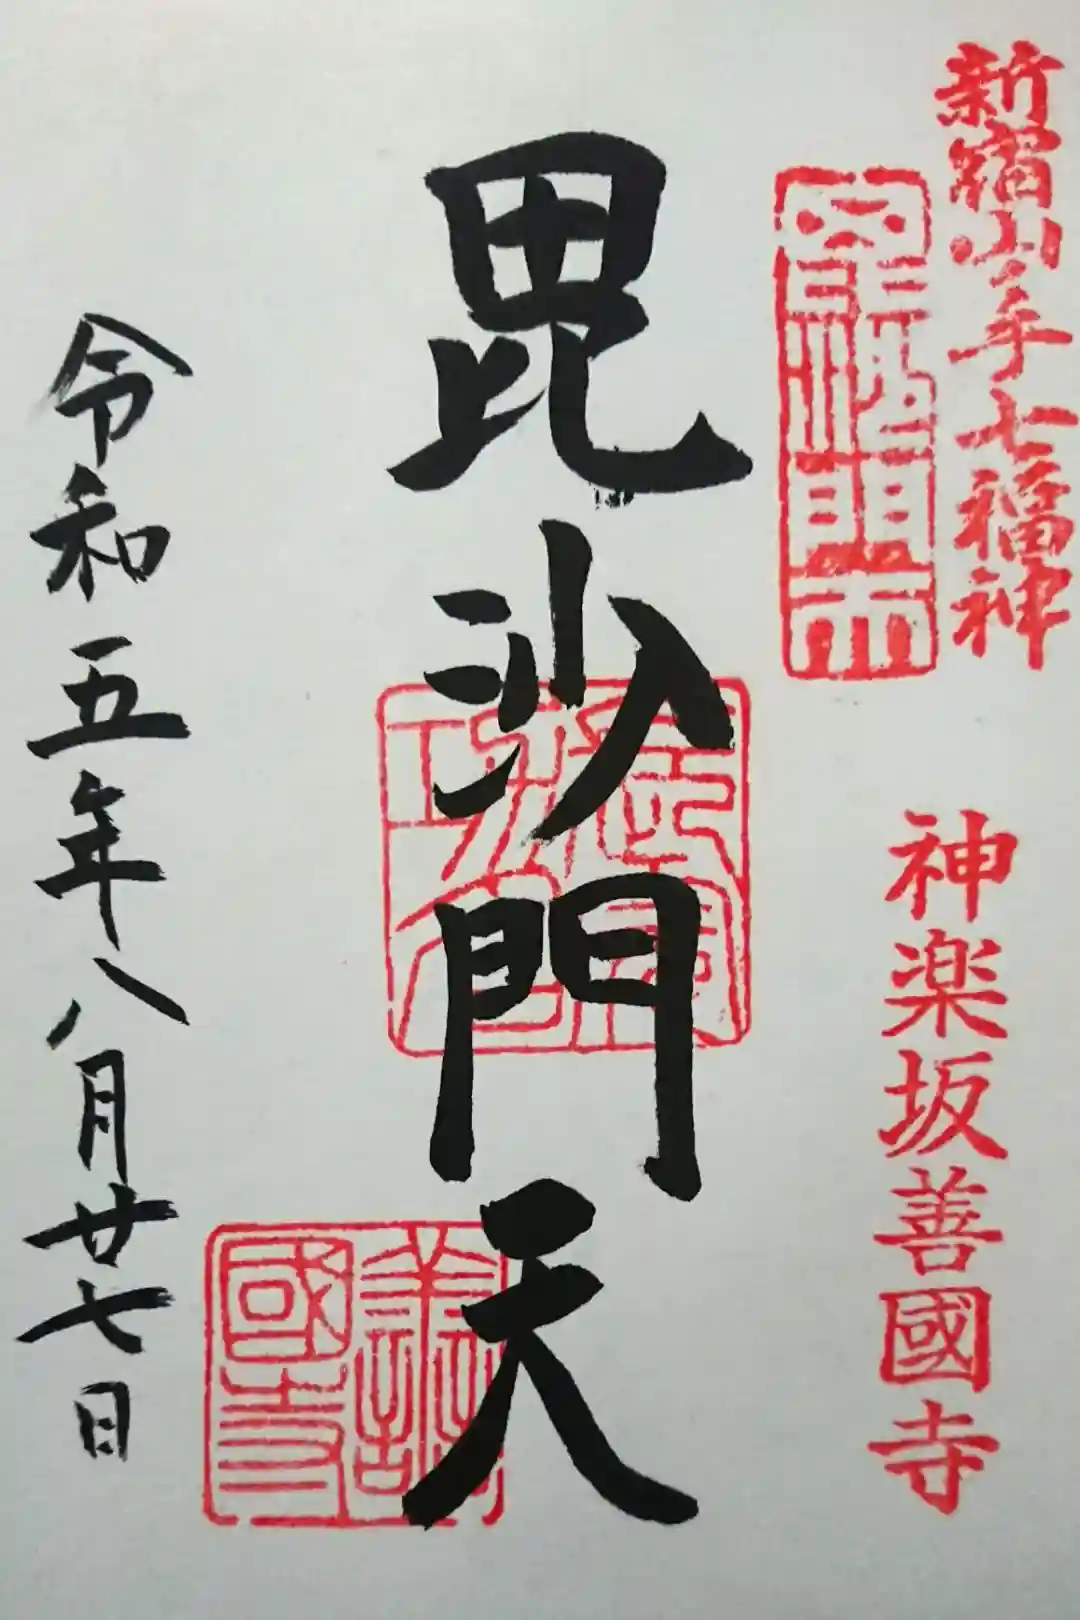 新宿山ノ手七福神
神楽坂善國寺
毘沙門天
善國寺
令和五年八月廿七日